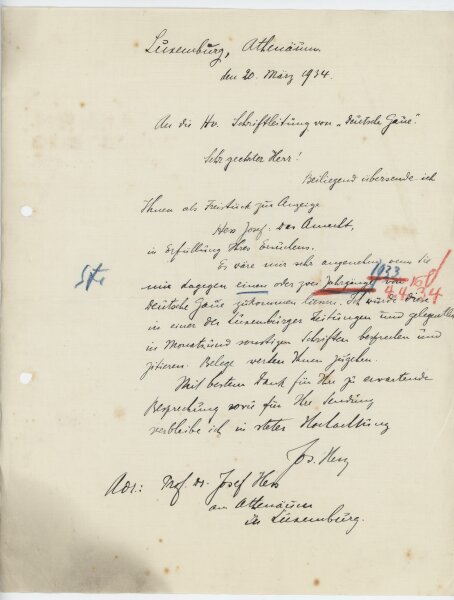 Luxemburg, Athenäum.
den 20. März 1934.
An die Hv. Schriftleitung von "Deutsche Gaue".
Sehr geehrter Herr!
Beiliegend übersende ich
Ihnen als Freistück zur Anzeige
Hess Josef. Das Amecht,
in Erfüllung Ihres Ersuchens.
Es wäre mir sehr angenehm, wenn Sie
1933
mir dagegen einen oder zwei Jahrgänge von
4.4.34
Deutsche Gaue zukommen liessen. Ich würde diese
in einer der Luxemburger Zeitungen und gelegentlich
in Monats und sonstigen Schriften besprechen und
zitieren. Belege werden Ihnen zugehen.
Mit bestem Dank für Ihre zu erwartende
Besprechung sowie für Ihre Sendung
verbleibe ich in steter Hochachtung
Jos. Hess
Adr: Prof. Dr. Josef Hess
am Athenäum
in Luxemburg.